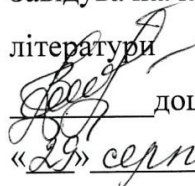 літератури
доц
«29» серп